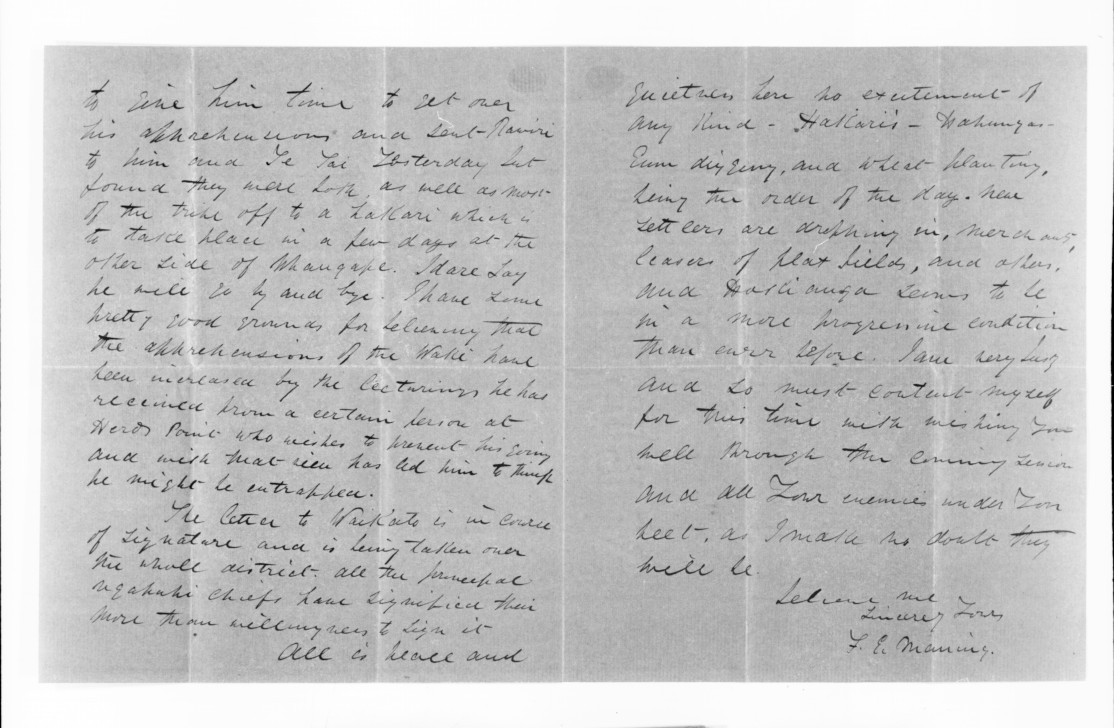 to give him time to get over
his apprehensions and sent Rawiri
to him and Te Tai Yesterday but
found they were both, as well as most
of the tribe off to a hakari which is
to take place in a few days at the
other side of Whangape. I dare say
he will go by and bye. I have some
pretty good grounds for believing that
the apprehensions of the Waka have
been increased by the lecturings he has
received from a certain person at
Herds Point who wishes to prevent his going
and with that view has led him to think
he might be entrapped.
The letter to Waikato is in course
of signature and is being taken over
the whole district. all the principal
ngapuhi chiefs have signified their
more than willingness to sign it
All is peace and
quietness here no excitement of
any Kind - Hakaris - Hahungas -
Gum digging, and wheat planting,
being the order of the day. New
settlers are dropping in, merchants,
leasers of flax fields, and others,
and Hokianga seems to be
in a more progressive condition
than ever before. I am very busy
and so must content myself
for this time with wishing You
well through the coming session
and all Your enemies under Your
feet, as I make no doubt they
will be.
believe me
Sincerely Yours
F. E. Maning.